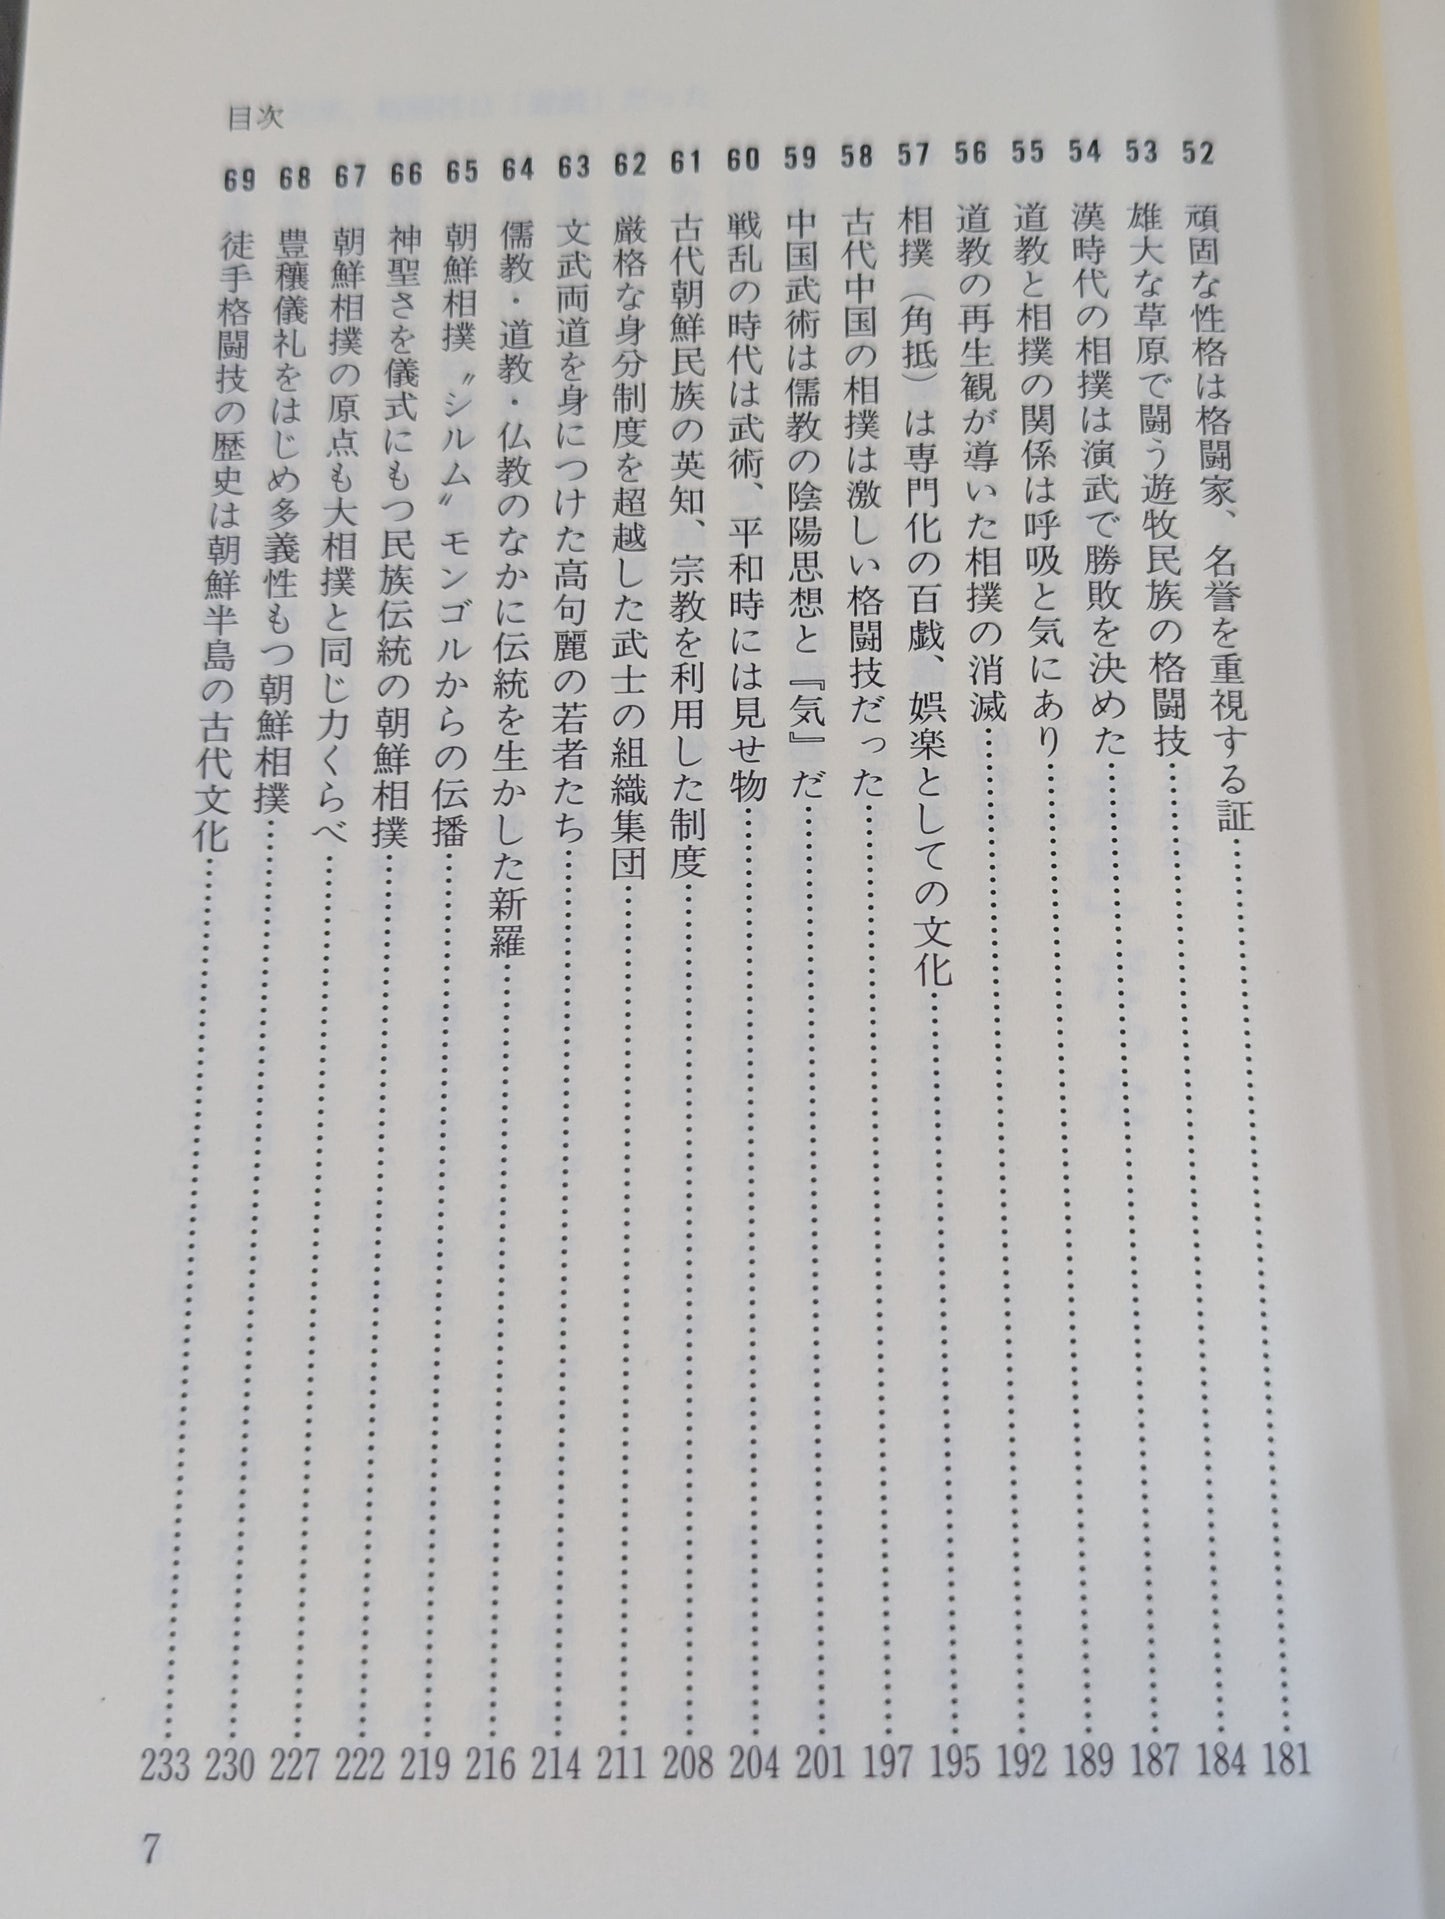 目次
52 頑固な性格は格闘家、名誉を重視する証……181
53 雄大な草原で闘う遊牧民族の格闘技……184
54 漢時代の相撲は演武で勝敗を決めた……187
55 道教と相撲の関係は呼吸と気にあり……189
56 道教の再生観が導いた相撲の消滅……192
57 相撲（角抵）は専門化の百戯、娯楽としての文化……195
58 古代中国の相撲は激しい格闘技だった……197
59 中国武術は儒教の陰陽思想と『気』だ……201
60 戦乱の時代は武術、平和時には見せ物……204
61 古代朝鮮民族の英知、宗教を利用した制度……208
62 厳格な身分制度を超越した武士の組織集団……211
63 文武両道を身につけた高句麗の若者たち……214
64 儒教・道教・仏教のなかに伝統を生かした新羅……216
65 朝鮮相撲〝シルム〟モンゴルからの伝播……219
66 神聖さを儀式にもつ民族伝統の朝鮮相撲……222
67 朝鮮相撲の原点も大相撲と同じ力くらべ……227
68 豊穣儀礼をはじめ多義性もつ朝鮮相撲……230
69 徒手格闘技の歴史は朝鮮半島の古代文化……233
7